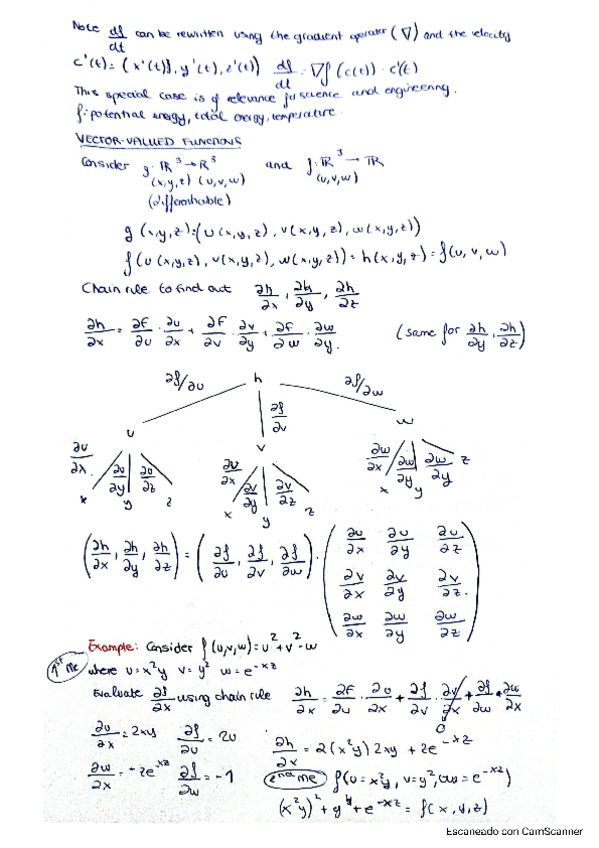 Note df/dt can be rewritten using the gradient operator (∇) and the velocity
c'(t) = (x'(t), y'(t), z'(t)) df/dt = ∇f(c(t)) · c'(t)
This special case is of relevance for science and engineering.
f: potential energy, total energy, temperature
VECTOR-VALUED FUNCTIONS
Consider g: ℝ³ → ℝ³ and f: ℝ³ → ℝ
(x,y,z) (u,v,w) (u,v,w)
(differentiable)
g(x,y,z) = (u(x,y,z), v(x,y,z), w(x,y,z))
f(u(x,y,z), v(x,y,z), w(x,y,z)) = h(x,y,z) = f(u,v,w)
Chain rule to find out ∂h/∂x, ∂h/∂y, ∂h/∂z
∂h/∂x = ∂f/∂u · ∂u/∂x + ∂f/∂v · ∂v/∂y + ∂f/∂w · ∂w/∂y. (same for ∂h/∂y, ∂h/∂z)
∂f/∂u h ∂f/∂w
∂f/∂v
u v w
∂u/∂x ∂u/∂y ∂u/∂z ∂v/∂x ∂v/∂y ∂v/∂z ∂w/∂x ∂w/∂y ∂w/∂y
x y z x y z x y z
(∂h/∂x, ∂h/∂y, ∂h/∂z) = (∂f/∂u, ∂f/∂v, ∂f/∂w) · ( ∂u/∂x ∂u/∂y ∂u/∂z
∂v/∂x ∂v/∂y ∂v/∂z.
∂w/∂x ∂w/∂y ∂w/∂z )
Example: Consider f(u,v,w) = u² + v² - w
1st me where u = x²y v = y² w = e^-xz
Evaluate ∂f/∂x using chain rule ∂h/∂x = ∂f/∂u · ∂u/∂x + ∂f/∂v · ∂v/∂x + ∂f/∂w · ∂w/∂x
0
∂u/∂x = 2xy ∂f/∂u = 2u ∂h/∂x = 2(x²y) 2xy + ze^-xz
∂w/∂x = -ze^-xz ∂f/∂w = -1 2nd me f(u = x²y, v = y², w = e^-xz)
(x²y)² + y⁴ + e^-xz = f(x,y,z)
Escaneado con CamScanner